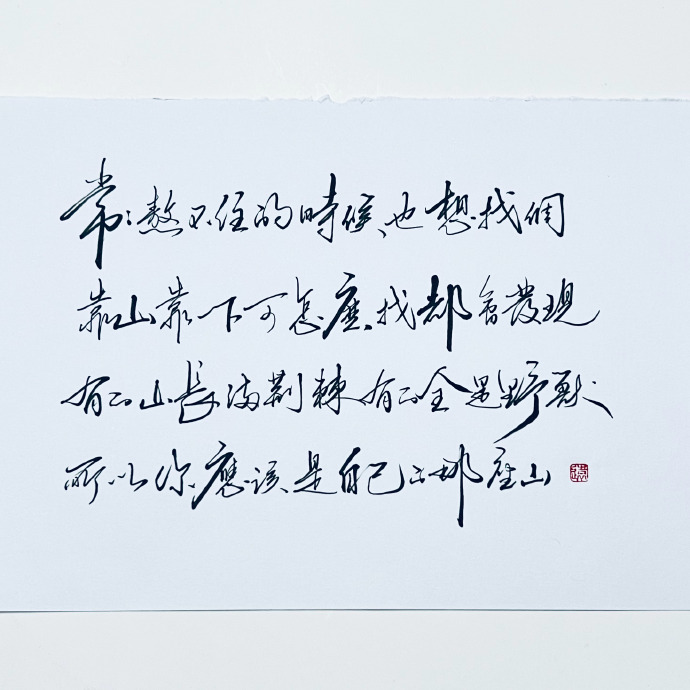 常常熬不住的時候、也想找個
靠山靠一下可怎麼找都會發現
有的山長滿荊棘有的全是野獸
所以你應該是自己的那座山